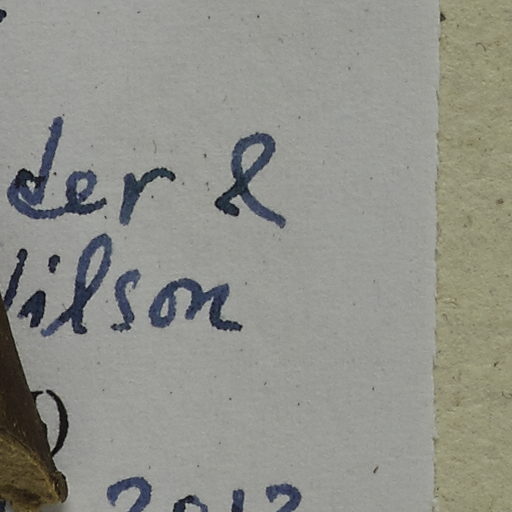 der &
Wilson
)
2012